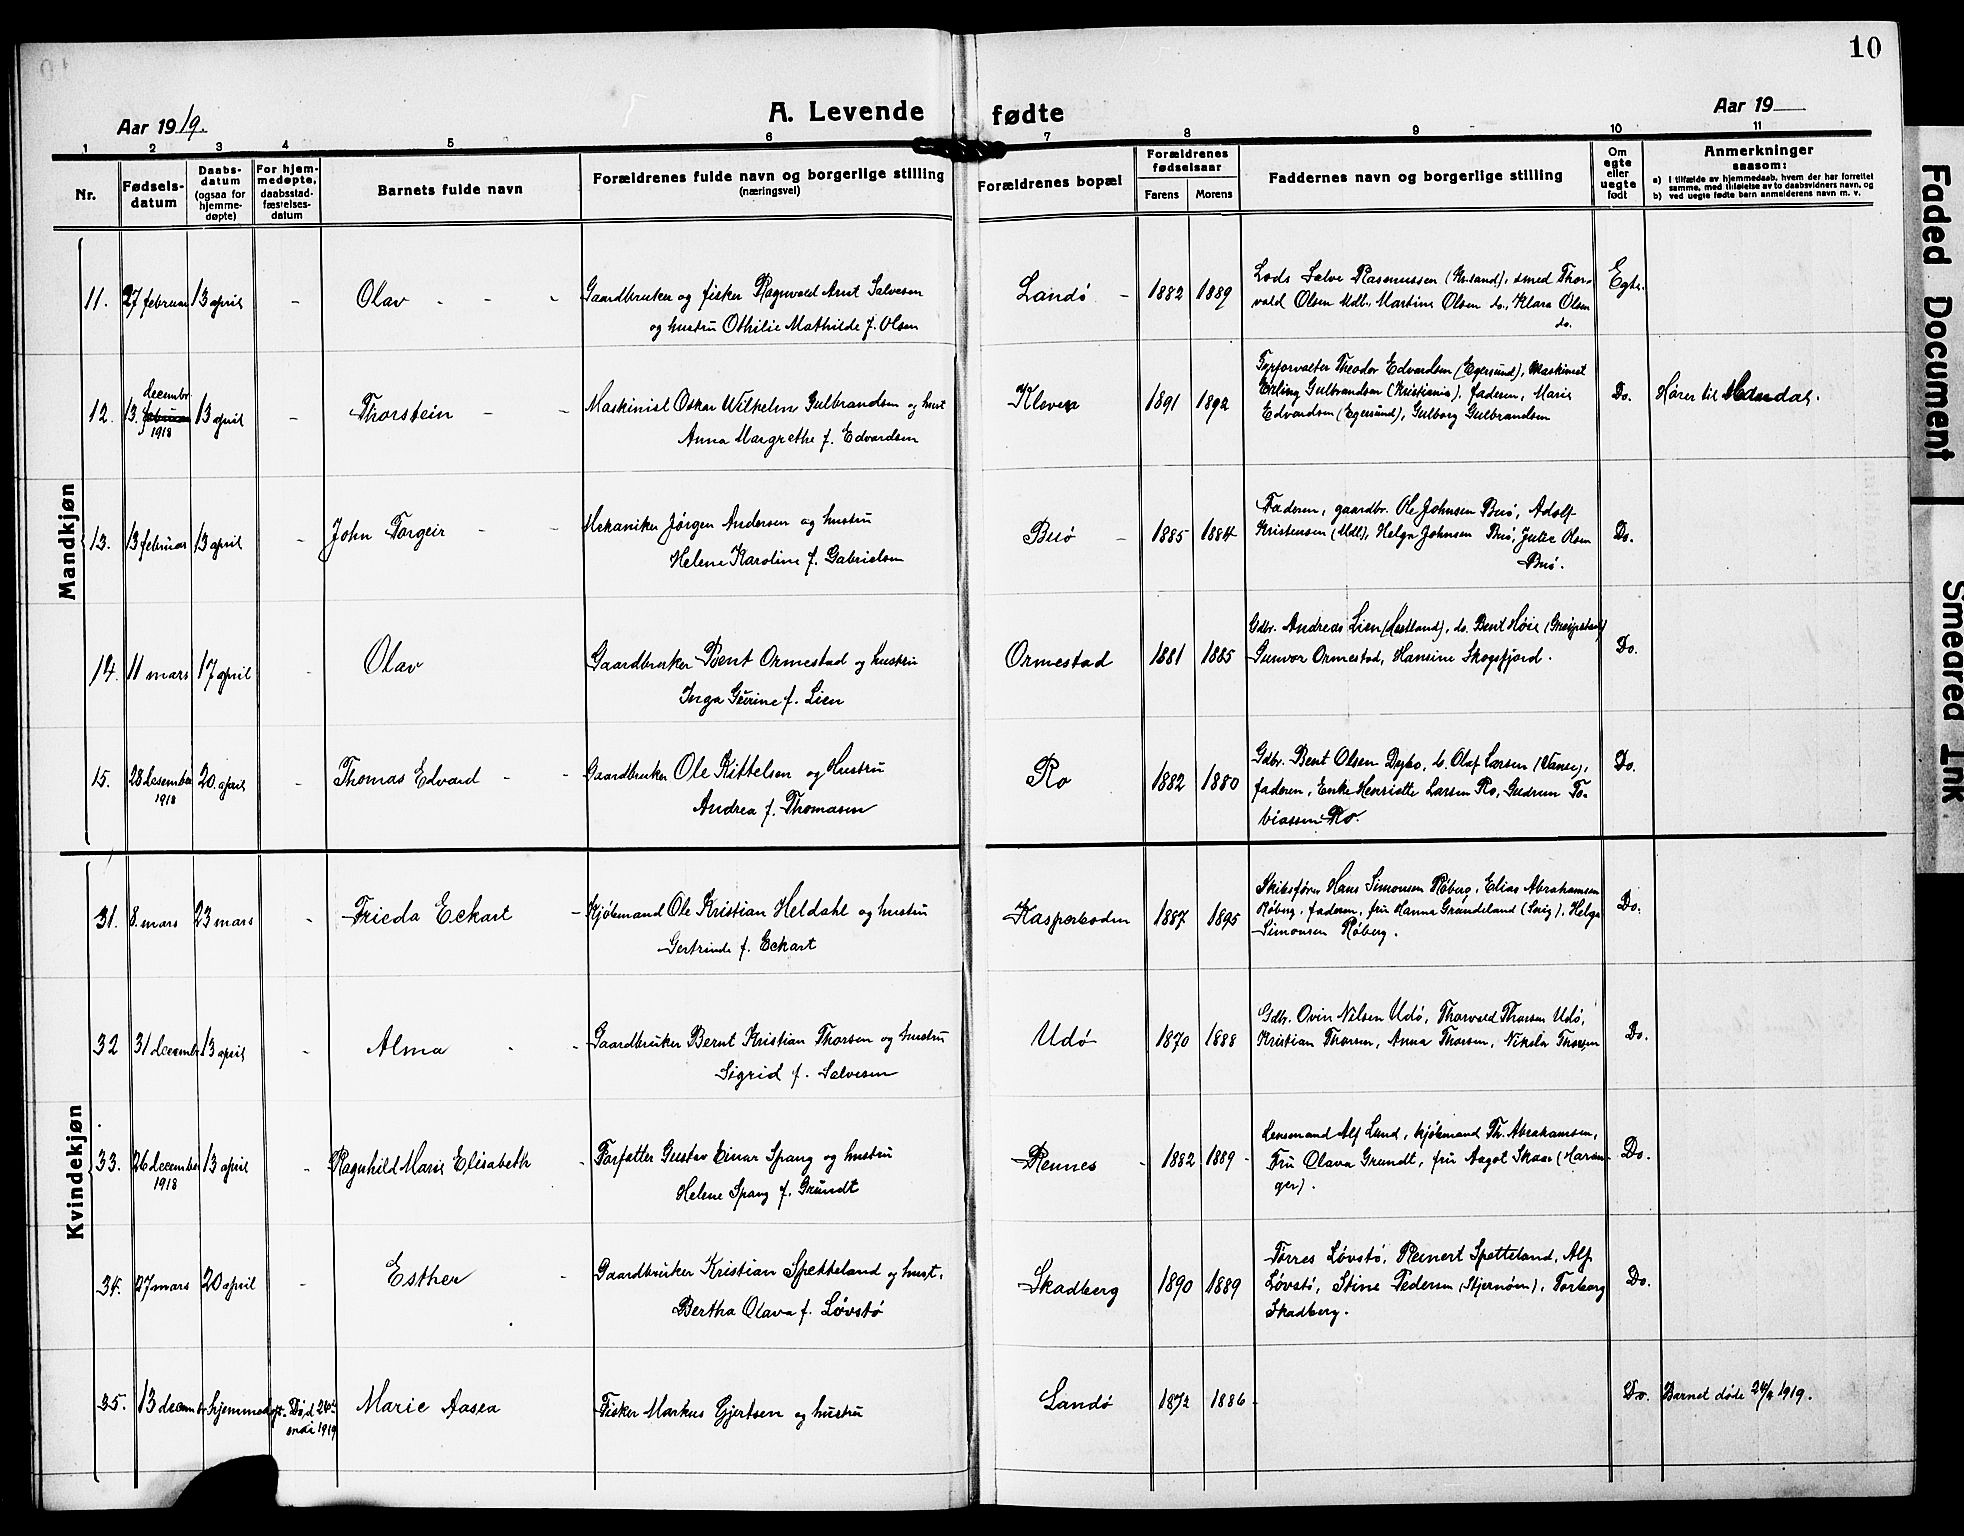 10
A. Levende fødte
Aar 1919.
Aar 19
1 2 3 4 5 6 7 8 9 10 11
Nr.
Fødsels-
datum
Daabs-
datum
(ogsaa for
hjemme-
døpte)
For hjem-
medøpte,
daabsstad-
fæstelses-
datum
Barnets fulde navn
Forældrenes fulde navn og borgerlige stilling
(næringsvei)
Forældrenes bopæl
Forældrenes
fødselsaar
Farens Morens
Faddernes navn og borgerlige stilling
Om
egte
eller
uegte
født
Anmerkninger
saasom:
a) I tilfælde av hjemmedaab, hvem der har forrettet
samme, med tilføielse av to daabsvidners navn, og
b) ved uegte fødte barn anmelderens navn m. v.
Mandkjøn
11. 27 februar 13 april - Olav - - - Gaardbruker og fisker Ragnvald Arnt Salvesen
og hustru Othilie Mathilde f. Olsen
Landø - 1882 1889
Lods Salve Rasmussen (Kr.sand), smed Thor-
vald Olsen Mdl., Martine Olsen do., Klara Olsen
do.
Egte.
12. 13. februar decembr 1918 13 april - Thorstein - - Maskinist Oskar Wilhelm Gulbrandsen og hust
Anna Margrethe f. Edvardsen
Kleven 1891 1892
Fyrforvalter Theodor Edvardsen (Egersund), Maskinist
Erling Gulbrandsen (Kristiania), faderen, Marie
Edvardsen (Egersund), Gulborg Gulbrandsen
Do. Hører til Mandal.
13. 13 februar 13 april - John Torgeir - - Mekaniker Jørgen Andersen og hustru
Helene Karoline f. Gabrielsen
Buø - 1885 1884
Faderen, gaardbr. Ole Johnsen Buø, Adolf
Kristensen (Mdl), Helga Johnsen Buø, Julie Olsen
Buø.
Do.
14. 11 mars 17 april - Olav Gaardbruker Bent Ormestad og hustru
Inga Gurine f. Lien
Ormestad 1881 1885
Gdbr. Andreas Lien, do. Bent Høie
Gunvor Ormestad, Hansine Skogsfjord.
Do.
15. 28 desember 1918 20 april - Thomas Edvard - - Gaardbruker Ole Kittelsen og Hustru
Andrea f. Thomasen
Ro 1882 1880
Gdbr. Bent Olsen Dybo, Olaf Larsen (Vanse),
faderen, Enke Henriette Larsen Ro, Gudrun To-
biassen Ro.
Do.
Kvindekjøn
31. 8 mars 23 mars - Frieda Eckart - Kjøbmand Ole Kristian Heldahl og hustru
Gertrinde f. Eckart
Kasperboden 1887 1895
Skibsfører Hans Simonsen Røberg, Elias Abrahamsen
Røberg, faderen, fru Hanna Grundeland, Helga
Simonsen Røberg.
Do.
32 31 decembr 13 april - Alma - - Gaardbruker Bernt Kristian Thorsen og hustru
Sigrid f. Salvesen
Udø 1870 1888
Gdbr. Ovin Nilsen Udø, Thorvald Thorsen Udø,
Kristian Thorsen, Anna Thorsen, Nikolai Thorsen
Do.
33. 26 december 1918 13 april - Ragnhild Marie Elisabeth - Forfatter Gustav Einar Spang og hustru
Helene Spang f. Grundt
Rennes - 1882 1889
Lensmand Alf Lund, kjøbmand Th. Abrahamsen,
Fru Olava Grundt, fru Aagot Skaar (Haran-
ger).
Do.
34. 27 mars 20 april - Esther - Gaardbruker Kristian Spetteland og hust.
Bertha Olava f. Løvstø
Skadberg 1890 1889
Tørres Løvstø, Reinert Spetteland, Alf
Løvstø, Stine Pedersen (Stjernøen), Torborg
Skadberg.
Do.
35. 13 decembr hjemmedøpt Død 24de
mai 1919 Marie Aasea Fisker Markus Gjertsen og hustru
Landø 1872 1886
Do. Barnet døde 1919.
Faded Document
Smeared Ink